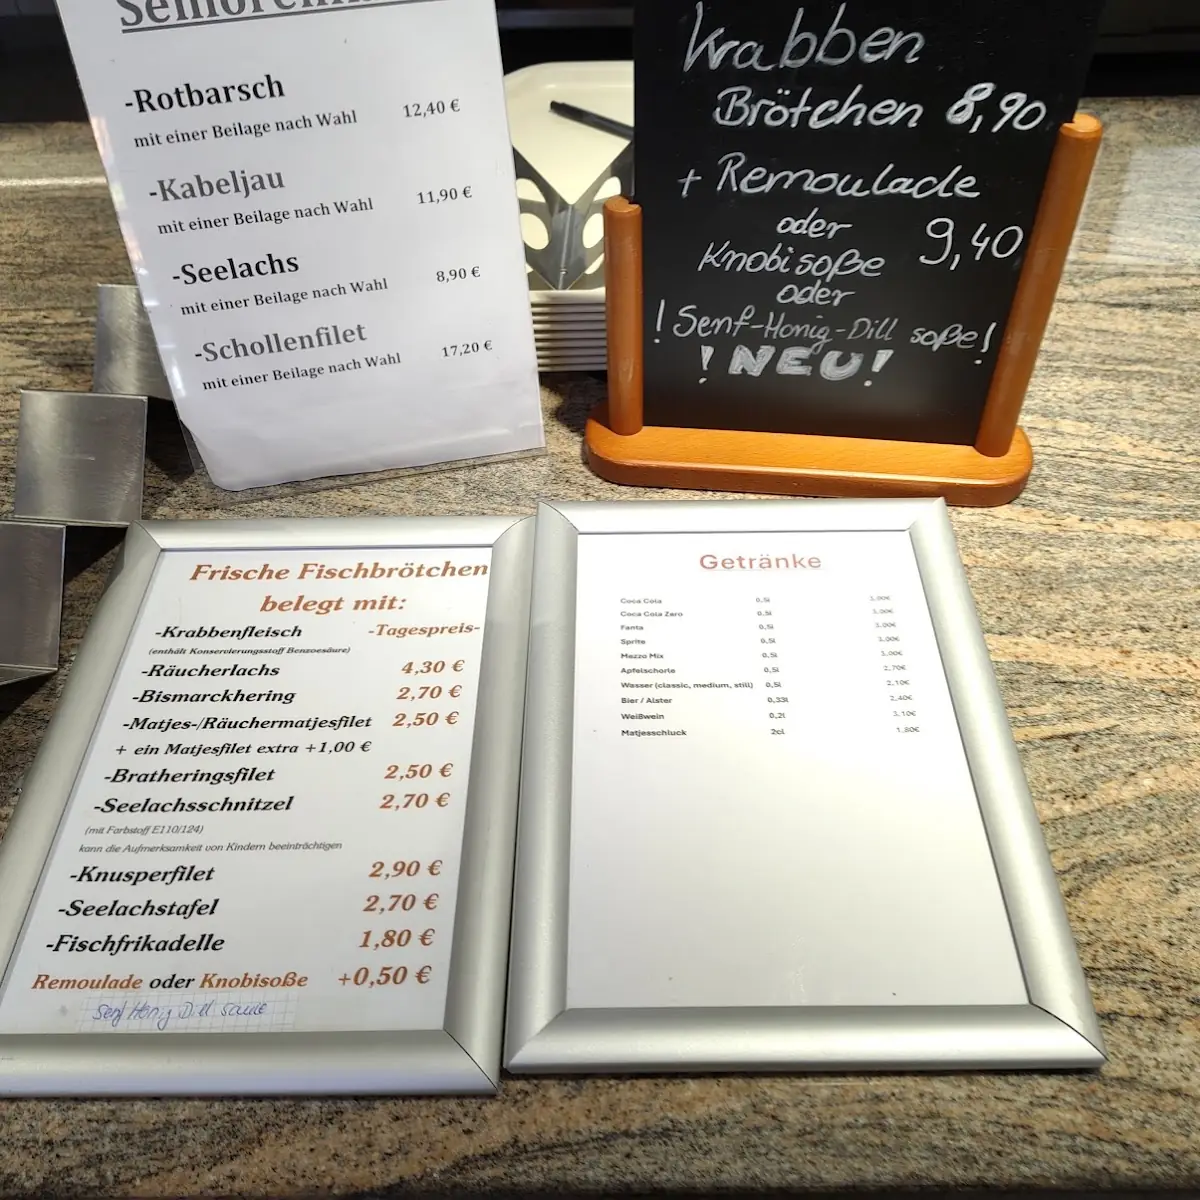 -Rotbarsch
mit einer Beilage nach Wahl 12,40 €
-Kabeljau
mit einer Beilage nach Wahl 11,90 €
-Seelachs
mit einer Beilage nach Wahl 8,90 €
-Schollenfilet
mit einer Beilage nach Wahl 17,20 €
Krabben
Brötchen 8,90
+ Remoulade
oder
Knobisoße 9,40
oder
! Senf-Honig-Dill soße!
! NEU!
Frische Fischbrötchen
belegt mit:
-Krabbenfleisch -Tagespreis-
(enthält Konservierungsstoff Benzoesäure)
-Räucherlachs 4,30 €
-Bismarckhering 2,70 €
-Matjes-/Räuchermatjesfilet 2,50 €
+ ein Matjesfilet extra +1,00 €
-Bratheringsfilet 2,50 €
-Seelachsschnitzel 2,70 €
(mit Farbstoff E110/124)
kann die Aufmerksamkeit von Kindern beeinträchtigen
-Knusperfilet 2,90 €
-Seelachstafel 2,70 €
-Fischfrikadelle 1,80 €
Remoulade oder Knobisoße +0,50 €
Senf Honig Dill sauce
Getränke
Coca Cola 0,5l 3,00€
Coca Cola Zero 0,5l 3,00€
Fanta 0,5l 3,00€
Sprite 0,5l 3,00€
Mezzo Mix 0,5l 3,00€
Apfelschorle 0,5l 2,70€
Wasser (classic, medium, still) 0,5l 2,10€
Bier / Alster 0,33l 2,40€
Weißwein 0,2l 3,10€
Matjesschluck 2cl 1,80€